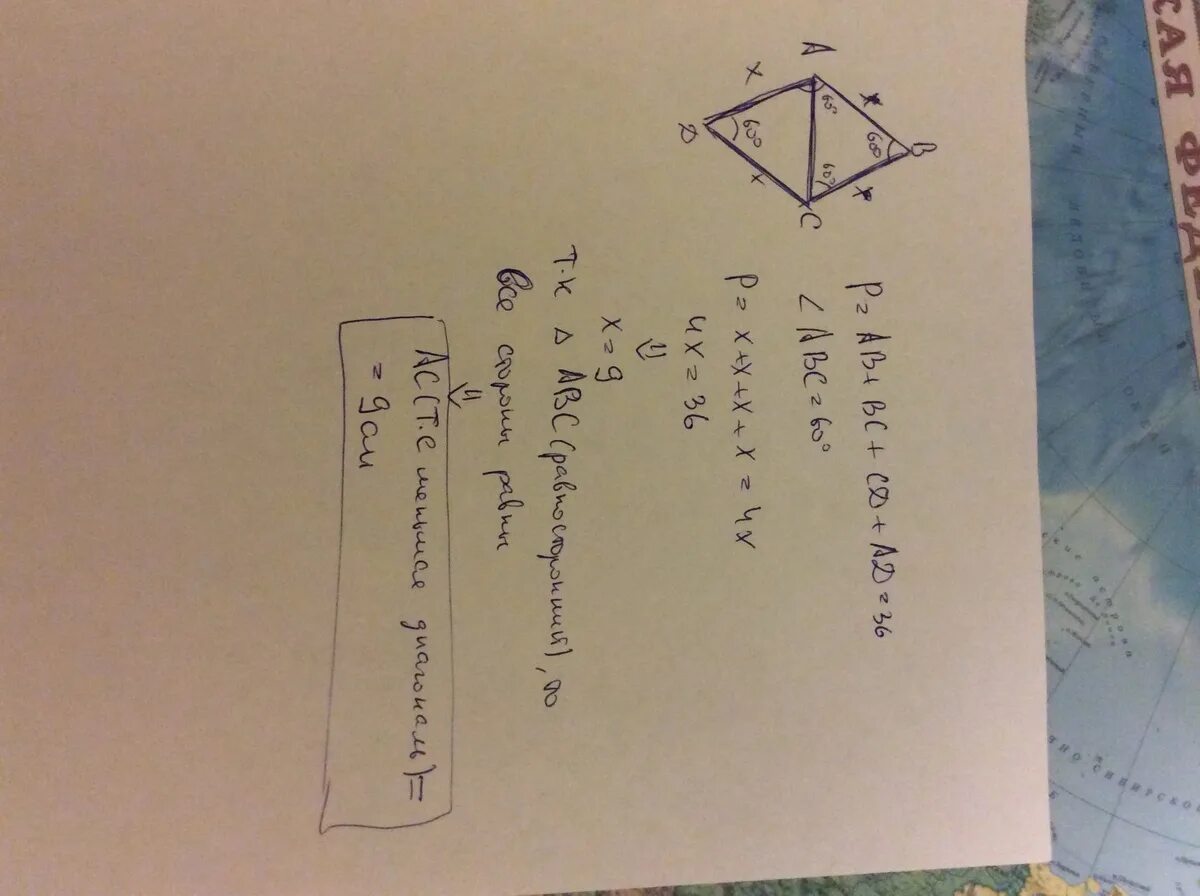 A
x
x
60°
60°
B
D
60°
60°
x
x
C
P = AB + BC + CD + AD = 36
∠ABC = 60°
P = x + x + x + x = 4x
4x = 36
⇓
x = 9
Т.к △ ABC (равносторонний), то
все стороны равны
⇓
AC (т.е меньшая диагональ) =
= 9 см
САЯ ФЕД